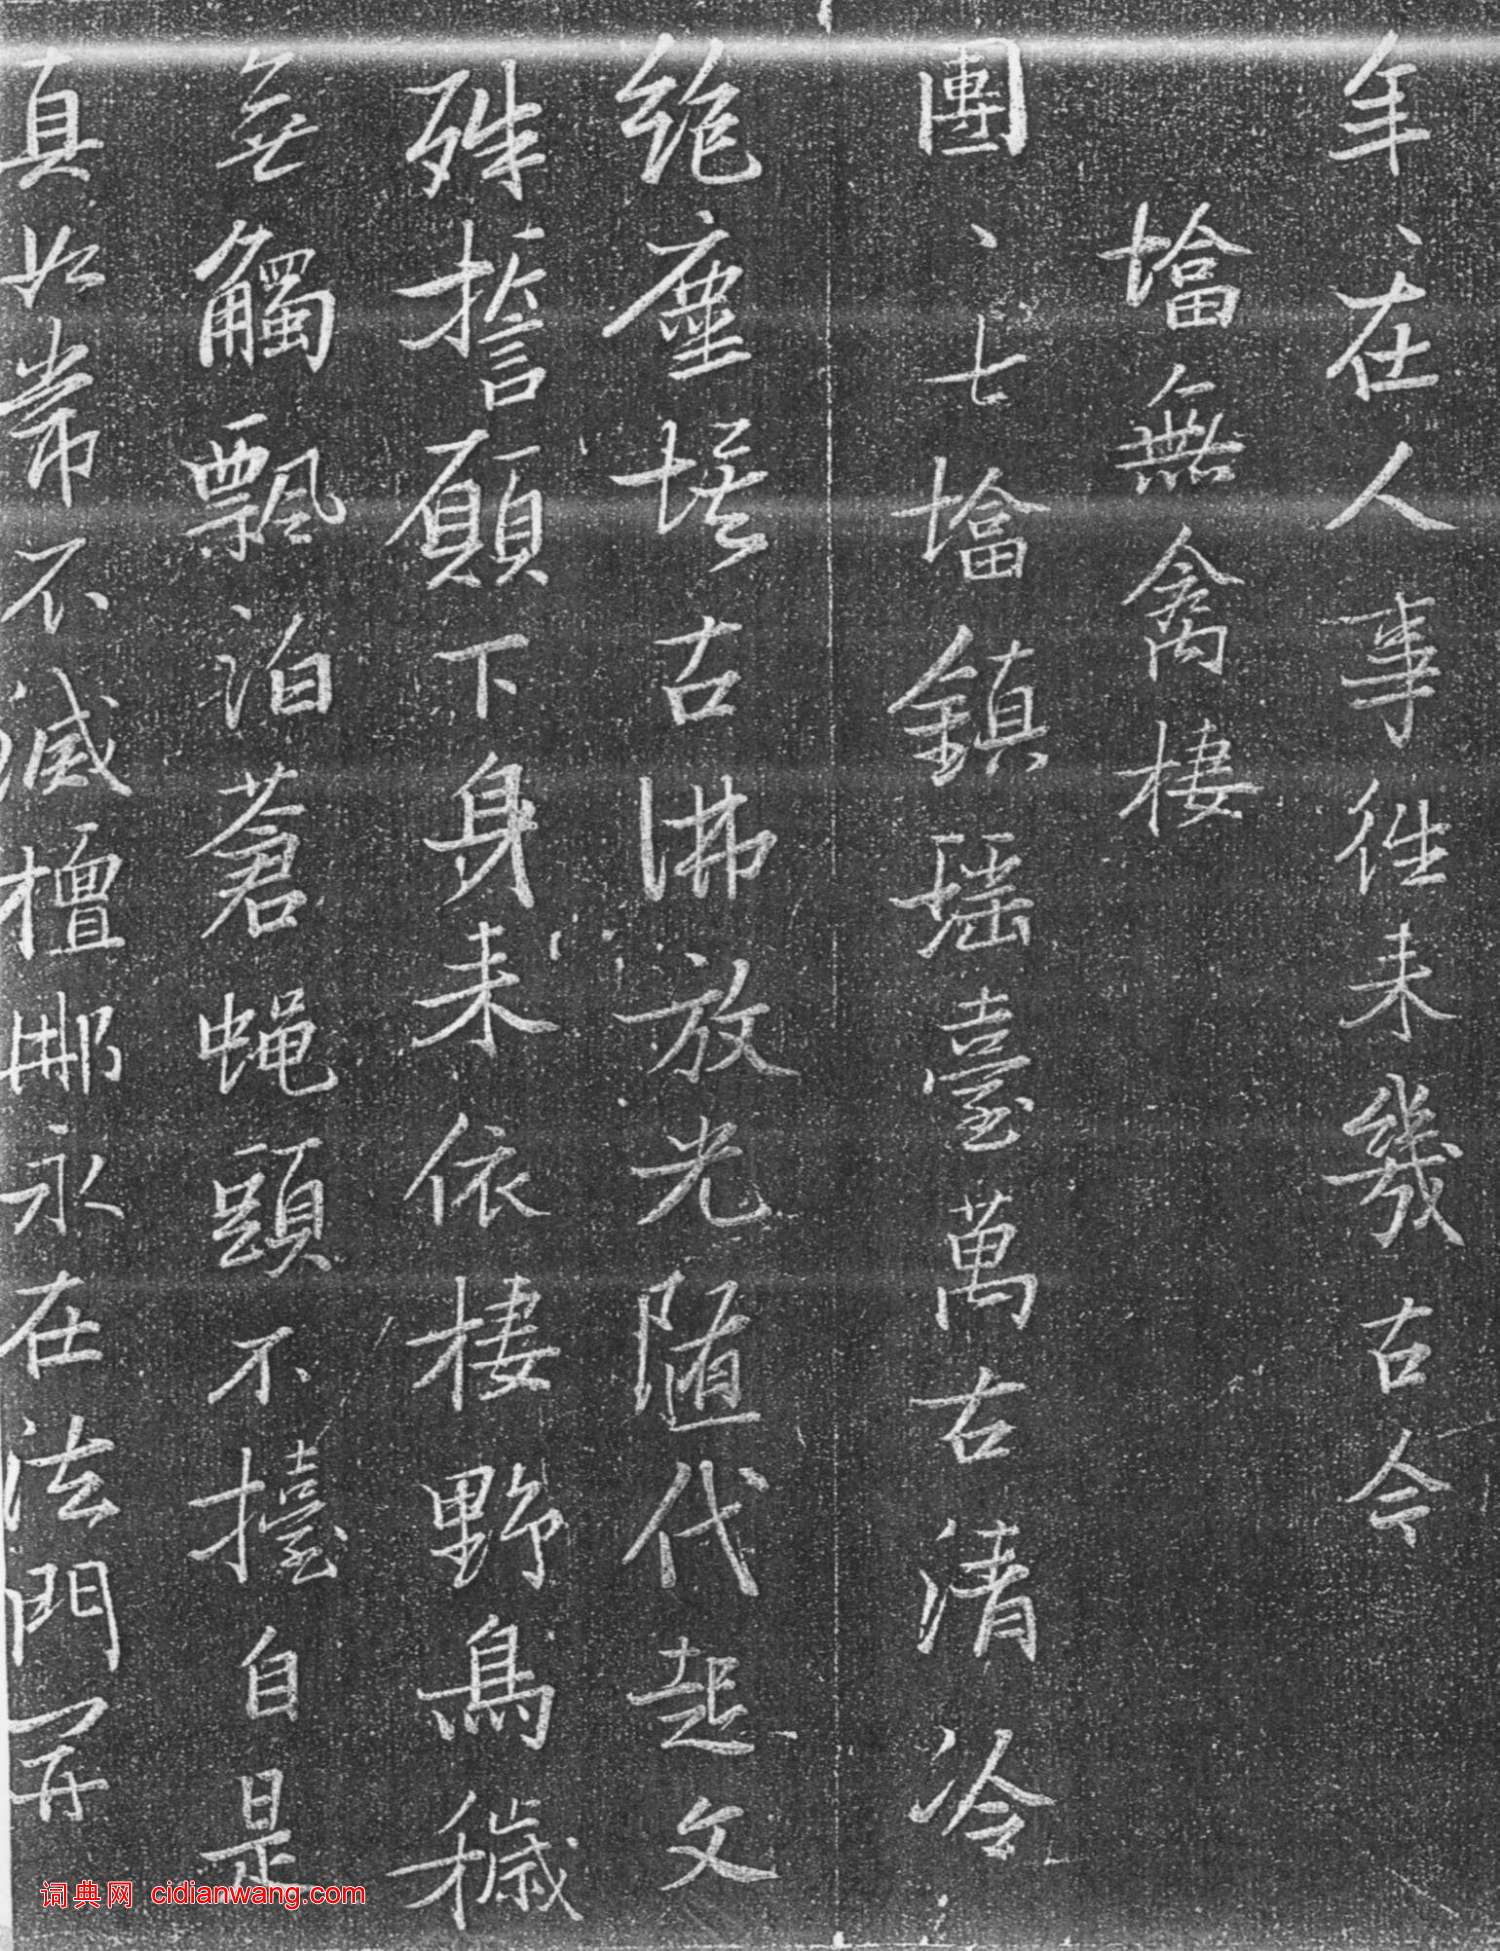 年在人事往来幾古今
墖無禽棲
團團七墖鎮瑶臺萬古清冷
絶塵埃古佛放光随代起文
殊誓願下身来依棲野鳥穢
無觸飄泊蒼蝇頭不擡自是
真如常不滅檀那永在法門開
词典网 cidianwang.com